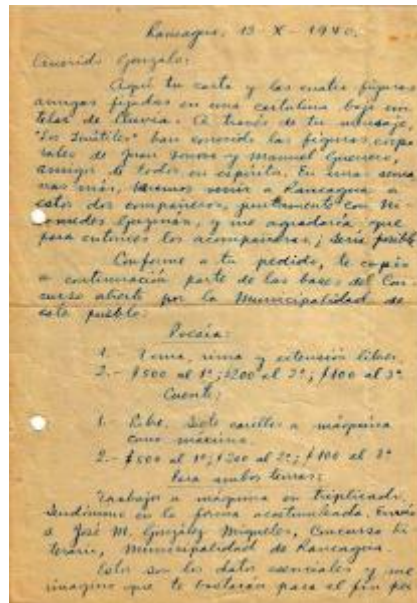 Rancagua, 13-X-1940.
Querido Gonzalo:
Aquí tu carta y las cuatro figuras
amigas fijadas en una cartulina bajo un
telar de lluvia. A través de tu mensaje,
"Los Inútiles" han conocido las figuras corpo
rales de Juan y Manuel Guerrero,
amigos de todos en espíritu. En unas sema
nas más, haremos venir a Rancagua a
estos dos compañeros, juntamente con Ni-
comedes Guzmán, y me agradaría que
para entonces los acompañaras, ¿sería posibl
Conforme a tu pedido, te copio
a continuación parte de las bases del Con-
curso abierto por la Municipalidad de
este pueblo:
Poesía:
1. Tema, rima y extensión libres.
2.- $500 al 1º; $200 al 2º; $100 al 3º
Cuento:
1. Libre. Siete carillas a máquina
como máximo.
2.- $500 al 1º; $200 al 2º; $100 al 3º
Para ambos temas:
Trabajos a máquina en triplicado.
Seudónimo en la forma acostumbrada. Envío
a José M. González Miqueles, Concurso Li
terario, Municipalidad de Rancagua.
Estos son los datos esenciales y me
imagino que te bastarán para el fin per